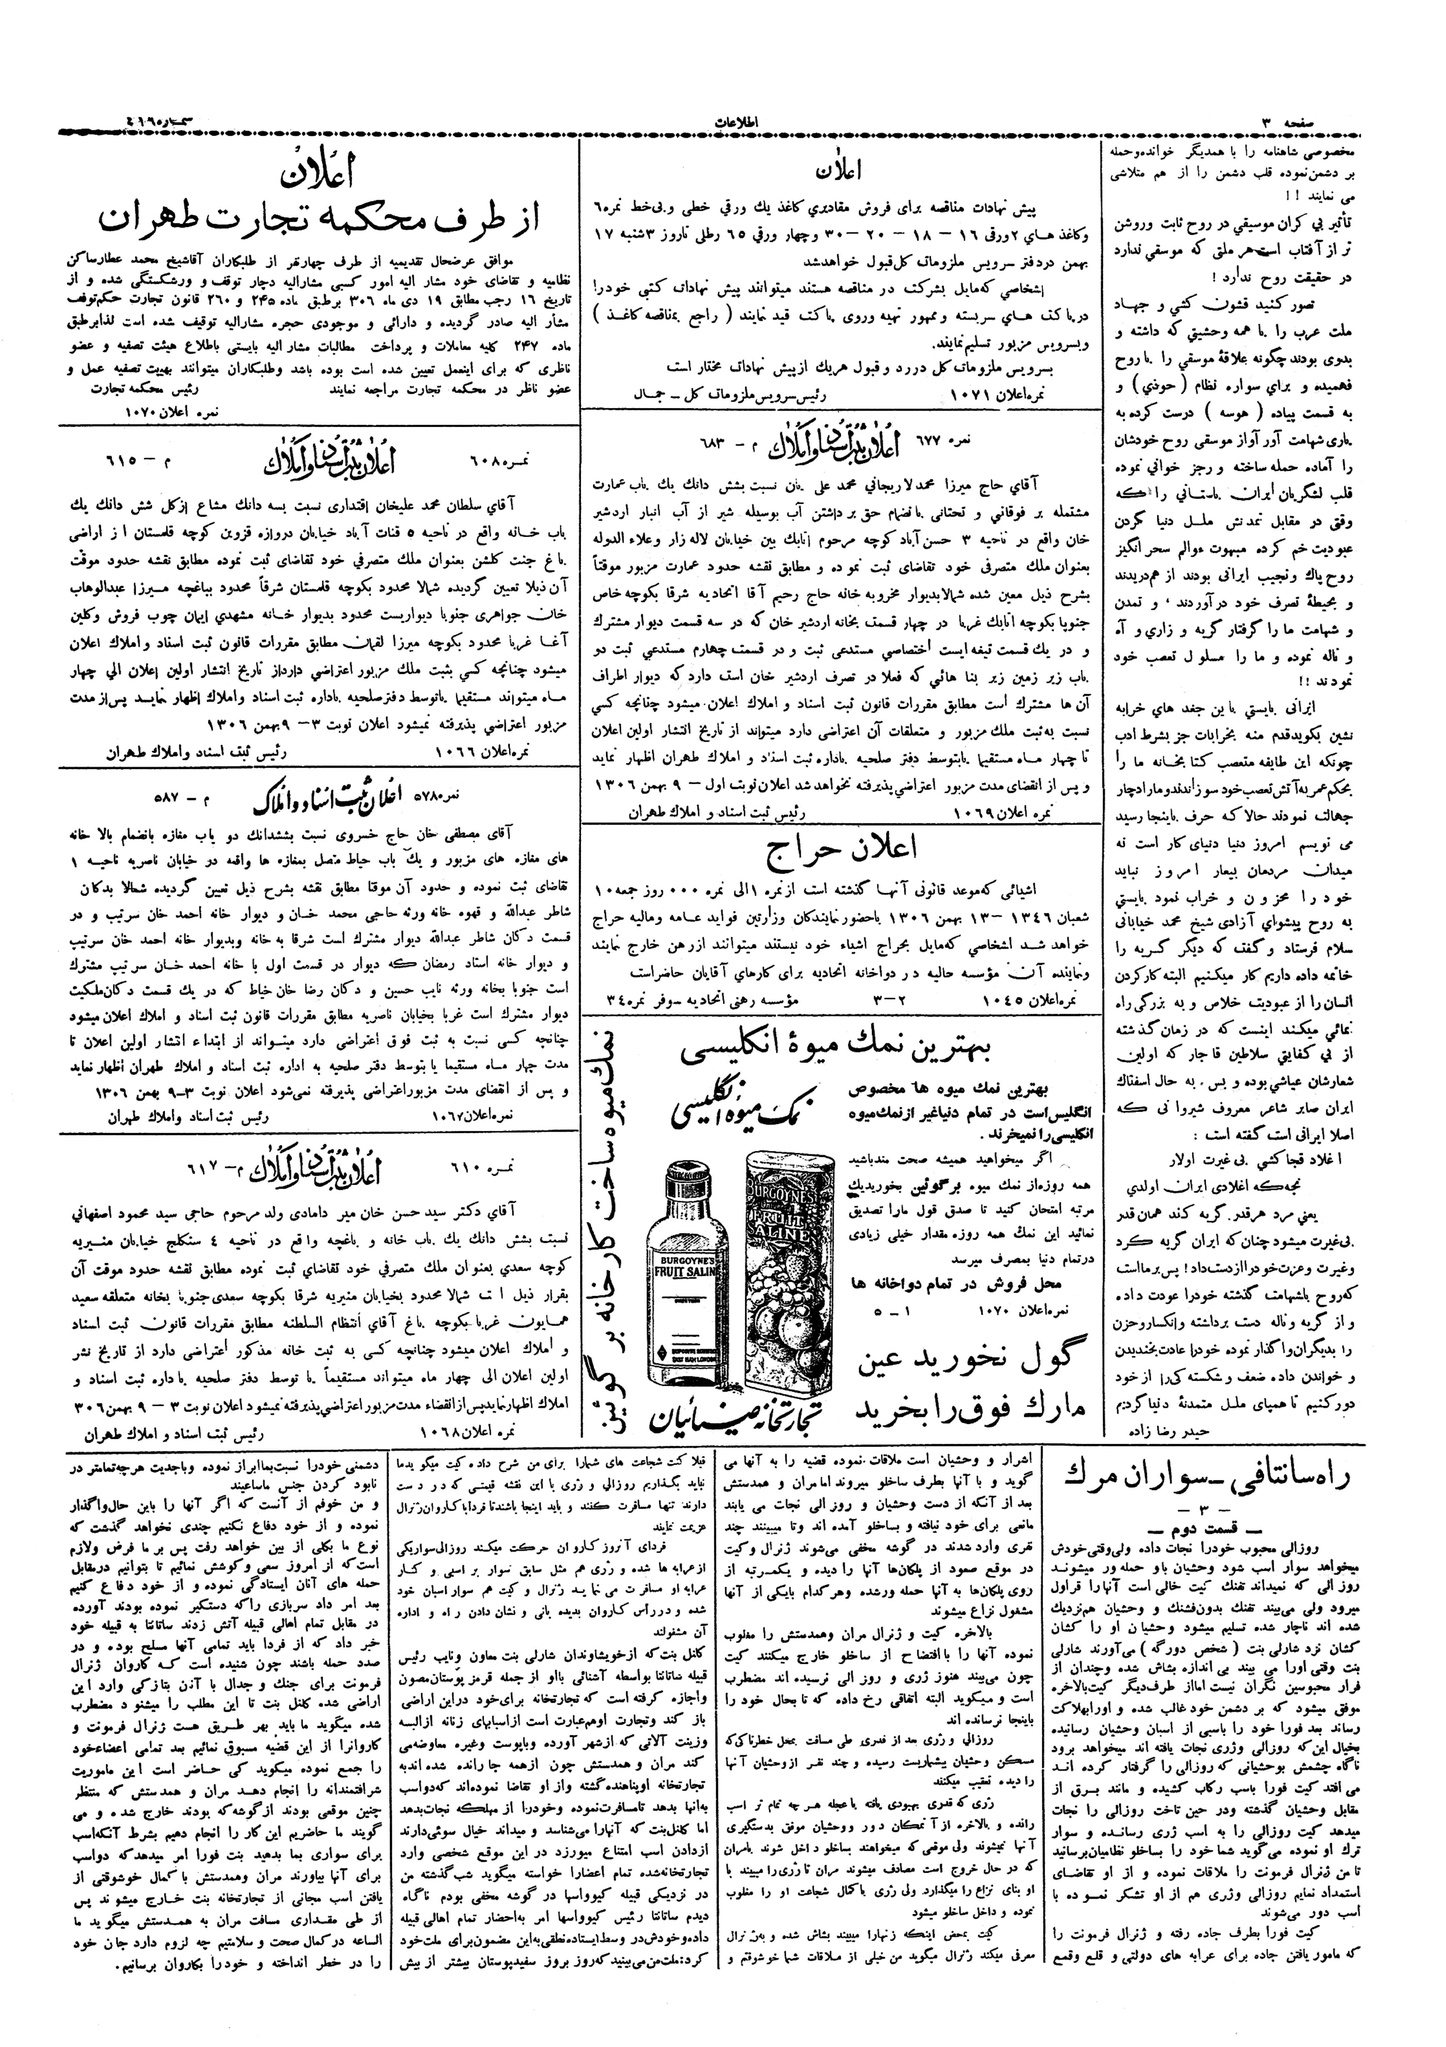 صفحه ۳
اطلاعات
شماره ۴۱۹
مخصوصی شاهنامه را با همدیگر خوانده وحمله
بر دشمن نموده قلب دشمن را از هم متلاشی
می نمایند !!
تأثیر بی کران موسیقی در روح ثابت وروشن
تر از آفتاب است هر ملتی که موسقی ندارد
در حقیقت روح ندارد !
تصور کنید قشون کشی و جهاد
ملت عرب را با همه وحشیتی که داشته و
بدوی بودند چگونه علاقهٔ موسقی را با روح
فهمیده و برای سواره نظام ( حوذی ) و
به قسمت پیاده ( هوسه ) درست کرده به
یاری شهامت آور آواز موسقی روح خودشان
را آماده حمله ساخته و رجز خوانی نموده
قلب لشگریان ایران باستانی را که
وقتی در مقابل تمدنش ملل دنیا گردن
عبودیت خم کرده مبهوت عوالم سحر انگیز
روح پاك ونجیب ایرانی بودند از هم دریدند
و بحیطهٔ تصرف خود درآوردند ، و تمدن
و شهامت ما را گرفتار گریه و زاری و آه
و ناله نموده و ما را مسلول تعصب خود
نمودند !!
ایرانی بایستی باین جغد های خرابه
نشین بگوید قدم منه بخرابات جز بشرط ادب
چونکه این طایفه متعصب کتابخانه ما را
بحکم عمر به آتش تعصب خود سوزاندند ومارا دچار
جهالت نمودند حالا که حرف باینجا رسید
می نویسم امروز دنیا دنیای کار است نه
میدان مردمان بیعار امروز نباید
خود را محزون و خراب نمود بایستی
به روح پیشوای آزادی شیخ محمد خیابانی
سلام فرستاد و گفت که دیگر گریه را
خاتمه داده داریم کار میکنیم البته کار کردن
انسان را از عبودیت خلاص و به بزرگی راه
نمائی میکند اینست که در زمان گذشته
از بی کفایتی سلاطین قاجار که اولین
شعارشان عیاشی بوده و بس، به حال اسفناك
ایران صابر شاعر معروف شیروانی که
اصلا ایرانی است گفته است :
اغلاد قجا کشی بی غیرت اولار
نجه که اغلادی ایران اولدی
یعنی مرد هر قدر گریه کند همان قدر
بی غیرت میشود چنان که ایران گریه کرد
وغیرت وعزت خود را از دست داد ! پس بر ما است
که روح باشهامت گذشته خود را عودت داده
و از گریه وناله دست برداشته وانکسار وحزن
را بدیگران واگذار نموده خود را عادت بخندیدن
و خواندن داده ضعف و شکسته گی را از خود
دور کنیم تا همپای ملل متمدنهٔ دنیا گردیم
حیدر رضا زاده
اعلان
پیش نهادات مناقصه برای فروش مقادیری کاغذ یك ورقی خطی و بی خط نمره ۶
وکاغذ های ۲ ورقی ۱۶ - ۱۸ - ۲۰ - ۳۰ وچهار ورقی ۶۵ رطلی تا روز ۳ شنبه ۱۷
بهمن در دفتر سرویس ملزومات کل قبول خواهد شد
اشخاصی که مایل بشرکت در مناقصه هستند میتوانند پیش نهادات کتبی خود را
در پاکت های سربسته و ممهور تهیه وروی پاکت قید نمایند ( راجع بمناقصه کاغذ )
وبسرویس مزبور تسلیم نمایند.
سرویس ملزومات کل در رد و قبول هر یك از پیش نهادات مختار است
نمره اعلان ۱۰۷۱ رئیس سرویس ملزومات کل - جمال
نمره ۶۷۷ اعلان ثبت اسناد و املاك م - ۶۸۳
آقای حاج میرزا محمد لاریجانی محمد علی یان نسبت بشش دانك یك باب عمارت
مشتمله بر فوقانی و تحتانی بانضمام حق برداشتن آب بوسیله شیر از آب انبار اردشیر
خان واقع در ناحیه ۳ حسن آباد کوچه مرحوم اتابك بین خیابان لاله زار وعلاء الدوله
بعنوان ملك متصرفی خود تقاضای ثبت نموده و مطابق نقشه حدود عمارت مزبور موقتاً
بشرح ذیل معین شده شمالا بدیوار مخروبه خانه حاج رحیم آقا اتحادیه شرقا بکوچه خاص
جنوبا بکوچه اتابك غربا در چهار قسمت بخانه اردشیر خان که در سه قسمت دیوار مشترك
و در یك قسمت تیغه ایست اختصاصی مستدعی ثبت و در قسمت چهارم مستدعی ثبت دو
باب زیر زمین زیر بنا هائی که فعلا در تصرف اردشیر خان است دارد که دیوار اطراف
آن ها مشترك است مطابق مقررات قانون ثبت اسناد و املاك اعلان میشود چنانچه کسی
نسبت به ثبت ملك مزبور و متعلقات آن اعتراضی دارد میتواند از تاریخ انتشار اولین اعلان
تا چهار ماه مستقیما یا بتوسط دفتر صلحیه باداره ثبت اسناد و املاك طهران اظهار نماید
و پس از انقضای مدت مزبور اعتراضی پذیرفته نخواهد شد اعلان نوبت اول - ۹ بهمن ۱۳۰۶
نمره اعلان ۱۰۶۹ رئیس ثبت اسناد و املاك طهران
اعلان حراج
اشیائی که موعد قانونی آنها گذشته است از نمره ۱ الی نمره ۰۰۰ روز جمعه ۱۰
شعبان ۱۳۴۶ - ۱۳ بهمن ۱۳۰۶ با حضور نمایندگان وزارتین فواید عامه ومالیه حراج
خواهد شد اشخاصی که مایل بحراج اشیاء خود نیستند میتوانند از رهن خارج نمایند
ونماینده آن مؤسسه حالیه در دواخانه اتحادیه برای کارهای آقایان حاضر است
نمره اعلان ۱۰۴۵ ۲-۳ مؤسسه رهنی اتحادیه - وفر نمره ۳۴
بهترین نمك میوهٔ انگلیسی
نمك میوه ساخت کارخانه بر گوئین
نمك میوهٔ انگلیسی
بهترین نمك میوه ها مخصوص
انگلیس است در تمام دنیا غیر از نمك میوه
انگلیسی را نمیخرند .
اگر میخواهید همیشه صحت مند باشید
همه روزه از نمك میوه برگوئین بخورید یك
مرتبه امتحان کنید تا صدق قول ما را تصدیق
نمائید این نمك همه روزه مقدار خیلی زیادی
در تمام دنیا بمصرف میرسد
محل فروش در تمام دواخانه ها
نمره اعلان ۱۰۷۰ ۱ - ۵
گول نخورید عین
مارك فوق را بخرید
BURGOYNE'S
FRUIT SALINE
BURGOYNE'S
FRUIT
SALINE
تجارتخانه ضیائیان
اعلان
از طرف محکمه تجارت طهران
موافق عرضحال تقدیمیه از طرف چهار نفر از طلبکاران آقا شیخ محمد عطار ساکن
نظامیه و تقاضای خود مشار الیه امور کسبی مشارالیه دچار توقف و ورشکستگی شده و از
تاریخ ۱۶ رجب مطابق ۱۹ دی ماه ۳۰۶ بر طبق ماده ۲۴۵ و ۲۶۰ قانون تجارت حکم توقف
مشار الیه صادر گردیده و دارائی و موجودی حجره مشارالیه توقیف شده است لذا بر طبق
ماده ۲۴۷ کلیه معاملات و پرداخت مطالبات مشار الیه بایستی باطلاع هیئت تصفیه و عضو
ناظری که برای اینعمل تعیین شده است بوده باشد وطلبکاران میتوانند بهیت تصفیه عمل و
عضو ناظر در محکمه تجارت مراجعه نمایند رئیس محکمه تجارت
نمره اعلان ۱۰۷۰
نمره ۶۰۸ اعلان ثبت اسناد و املاك م - ۶۱۵
آقای سلطان محمد علیخان اقتداری نسبت بسه دانك مشاع از کل شش دانك یك
باب خانه واقع در ناحیه ۵ قنات آباد خیابان دروازه قزوین کوچه قلمستان از اراضی
باغ جنت گلشن بعنوان ملك متصرفی خود تقاضای ثبت نموده مطابق نقشه حدود موقت
آن ذیلا تعیین گردیده شمالا محدود بکوچه قلمستان شرقاً محدود بباغچه میرزا عبدالوهاب
خان جواهری جنوبا دیواریست محدود بدیوار خانه مشهدی ایمان چوب فروش وکلین
آغا غربا محدود بکوچه میرزا لقمان مطابق مقررات قانون ثبت اسناد و املاك اعلان
میشود چنانچه کسی بثبت ملك مزبور اعتراضی دارد از تاریخ انتشار اولین اعلان الی چهار
ماه میتواند مستقیما یا توسط دفتر صلحیه باداره ثبت اسناد و املاك اظهار نماید پس از مدت
مزبور اعتراضی پذیرفته نمیشود اعلان نوبت ۳ - ۹ بهمن ۱۳۰۶
نمره اعلان ۱۰۶۶ رئیس ثبت اسناد و املاك طهران
نمره ۵۷۸ اعلان ثبت اسناد و املاك م - ۵۸۷
آقای مصطفی خان حاج خسروی نسبت بششدانك دو باب مغازه بانضمام بالا خانه
های مغازه های مزبور و یك باب حیاط متصل بمغازه ها واقعه در خیابان ناصریه ناحیه ۱
تقاضای ثبت نموده و حدود آن موقتا مطابق نقشه بشرح ذیل تعیین گردیده شمالا بدکان
شاطر عبدالله و قهوه خانه ورثه حاجی محمد خان و دیوار خانه احمد خان سرتیپ و در
قسمت دکان شاطر عبدالله دیوار مشترك است شرقا به خانه وبدیوار خانه احمد خان سرتیپ
و دیوار خانه استاد رمضان که دیوار در قسمت اول با خانه احمد خان سرتیپ مشترك
است جنوبا بخانه ورثه نایب حسین و دکان رضا خان خیاط که در یك قسمت دکان ملکیت
دیوار مشترك است غربا بخیابان ناصریه مطابق مقررات قانون ثبت اسناد و املاك اعلان میشود
چنانچه کسی نسبت به ثبت فوق اعتراضی دارد میتواند از ابتداء انتشار اولین اعلان تا
مدت چهار ماه مستقیما یا بتوسط دفتر صلحیه به اداره ثبت اسناد و املاك طهران اظهار نماید
و پس از انقضای مدت مزبور اعتراضی پذیرفته نمی‌شود اعلان نوبت ۳-۹ بهمن ۱۳۰۶
نمره اعلان ۱۰۶۷ رئیس ثبت اسناد واملاك طهران
نمره ۶۱۰ اعلان ثبت اسناد و املاك م - ۶۱۷
آقای دکتر سید حسن خان میر دامادی ولد مرحوم حاجی سید محمود اصفهانی
نسبت بشش دانك یك باب خانه و باغچه واقع در ناحیه ۴ سنگلج خیابان منیریه
کوچه سعدی بعنوان ملك متصرفی خود تقاضای ثبت نموده مطابق نقشه حدود موقت آن
بقرار ذیل است شمالا محدود بخیابان منیریه شرقا بکوچه سعدی جنوبا بخانه متعلقه سعید
همایون غربا بکوچه باغ آقای انتظام السلطنه مطابق مقررات قانون ثبت اسناد
و املاك اعلان میشود چنانچه کسی به ثبت خانه مذکور اعتراضی دارد از تاریخ نشر
اولین اعلان الی چهار ماه میتواند مستقیماً یا توسط دفتر صلحیه باداره ثبت اسناد و
املاك اظهار نماید پس از انقضاء مدت مزبور اعتراضی پذیرفته نمیشود اعلان نوبت ۳ - ۹ بهمن ۳۰۶
نمره اعلان ۱۰۶۸ رئیس ثبت اسناد و املاك طهران
راه سانتافی - سواران مرك
- ۳ -
- قسمت دوم -
روزالی محبوب خود را نجات داده ولی وقتی خودش
میخواهد سوار اسب شود وحشیان باو حمله ور میشوند
روزالی که نمیداند تفنك کیت خالی است آنها را قراول
میرود ولی می بیند تفنك بدون فشنك و وحشیان هم نزدیك
شده اند ناچار شده تسلیم میشود وحشیان او را کشان
کشان نزد شارلی بنت ( شخص دورگه ) می‌آورند شارلی
بنت وقتی او را می بیند بی اندازه بشاش شده وچندان از
فرار محبوسین نگران نیست اما از طرف دیگر کیت بالاخره
موفق میشود که بر دشمن خود غالب شده و او را بهلاکت
رساند بعد فورا خود را باسبی از اسبان وحشیان رسانیده
بخیال این که روزالی وژری نجات یافته اند میخواهد برود
ناگاه چشمش بوحشیانی که روزالی را گرفتار کرده اند
می افتد کیت فورا باسب رکاب کشیده و مانند برق از
مقابل وحشیان گذشته ودر حین تاخت روزالی را نجات
میدهد کیت روزالی را به اسب ژری رسانده و سوار
ترك او نموده می‌گوید شما خود را بساخلو نظامیان برسانید
تا من ژنرال فرمونت را ملاقات نموده و از او تقاضای
استمداد نمایم روزالی وژری هم از او تشکر نموده با
اسب دور می‌شوند
کیت فورا بطرف جاده رفته و ژنرال فرمونت را
که مامور یافتن جاده برای عرابه های دولتی و قلع وقمع
اشرار و وحشیان است ملاقات نموده قضیه را به آنها می
گوید و با آنها بطرف ساخلو میروند اما مران و همدستش
بعد از آنکه از دست وحشیان و روزالی نجات می یابند
مانعی برای خود نیافته و بساخلو آمده اند وتا میبینند چند
نفری وارد شدند در گوشه مخفی می‌شوند ژنرال وکیت
در موقع صعود از پلکان‌ها آنها را دیده و یکمرتبه از
روی پلکان‌ها به آنها حمله ور شده وهر کدام بایکی از آنها
مشغول نزاع میشوند
بالاخره کیت و ژنرال مران وهمدستش را مغلوب
نموده آنها را با افتضاح از ساخلو خارج میکنند کیت
چون می‌بیند هنوز ژری و روزالی نرسیده اند مضطرب
است و میگوید البته اتفاقی رخ داده که تا بحال خود را
باینجا نرسانده اند
روزالی و ژری بعد از قدری طی مسافت بمحل خطرناکی که
مسکن وحشیان بیشمار است رسیده و چند نفر از وحشیان آنها
را دیده تعقیب میکنند
ژری که قدری بهبودی یافته با عجله هر چه تمام تر اسب
رانده و بالاخره از آنمکان دور و وحشیان موفق بدستگیری
آنها نمیشوند ولی موقعی که میخواهند بساخلو داخل شوند بامران
که در حال خروج است مصادف میشوند مران تا ژری را میبیند با
او بنای نزاع را میگذارد ولی ژری باکمال شجاعت او را مغلوب
نموده و داخل ساخلو میشود
کیت بمحض اینکه زنها را میبیند بشاش شده و بژنرال
معرفی میکند ژنرال میگوید من خیلی از ملاقات شما خوشوقتم و
قبلا کیت شجاعت های شما را برای من شرح داده کیت میگوید ما
نباید بگذاریم روزالی و ژری با این نقشه قیمتی که در دست
دارند تنها مسافرت کنند و باید اینجا باشند تا فردا با کاروان ژنرال
عزیمت نمایند
فردای آنروز کاروان حرکت میکند روزالی سوار یکی
از عرابه ها شده و ژری هم مثل سابق سوار بر اسبی و کنار
عرابه او مسافرت می نماید ژنرال و کیت هم سوار اسبان خود
شده و در رأس کاروان بدیده بانی و نشان دادن راه و اداره
آن مشغولند
کانل بنت که از خویشاوندان شارلی بنت معاون ونایب رئیس
قبیله ساتانتا بواسطه آشنائی با او از حمله قرمز پوستان مصون
واجازه گرفته است که تجارتخانه برای خود در این اراضی
باز کند وتجارت او هم عبارت است از اسبابهای زنانه از البسه
وزینت آلاتی که از شهر آورده وباپوست وغیره معاوضه می
کند مران و همدستش چون از همه جا رانده شده اند به
تجارتخانه او پناهنده گشته و از او تقاضا نموده‌اند که دو اسب
به آنها بدهد تا مسافرت نموده وخود را از مهلکه نجات بدهد
اما کانل بنت که آنها را می‌شناسد و میداند خیال سوئی دارند
از دادن اسب امتناع میورزد در این موقع شخصی وارد
تجارتخانه شده تمام اعضا را خواسته میگوید شب گذشته من
در نزدیکی قبیله کیوواسها در گوشه مخفی بودم ناگاه
دیدم ساتانتا رئیس کیوواسها امر به احضار تمام اهالی قبیله
داده وخودش در وسط ایستاده نطقی به این مضمون برای ملت خود
کرد: ملت من می‌بینید که روز بروز سفید پوستان بیشتر از پیش
دشمنی خود را نسبت بما ابراز نموده وباجدیت هرچه تمامتر در
نابود کردن جنس ما ساعیند
و من خوفم از آنست که اگر آنها را باین حال واگذار
نموده و از خود دفاع نکنیم چندی نخواهد گذشت که
نوع ما بکلی از بین خواهد رفت پس بر ما فرض ولازم
است که از امروز سعی و کوشش نمائیم تا بتوانیم در مقابل
حمله های آنان ایستادگی نموده و از خود دفاع کنیم
بعد امر داد سربازی را که دستگیر نموده بودند آورده
در مقابل تمام اهالی قبیله آتش زدند ساتانتا به قبیله خود
خبر داد که از فردا باید تمامی آنها مسلح بوده و در
صدد حمله باشند چون شنیده است که کاروان ژنرال
فرمونت برای جنك و جدال با آنان بتازگی وارد این
اراضی شده کانل بنت تا این مطلب را میشنود مضطرب
شده میگوید ما باید بهر طریق هست ژنرال فرمونت و
کاروانرا از این قضیه مسبوق نمائیم بعد تمامی اعضاء خود
را جمع نموده میگوید کی حاضر است این ماموریت
شرافتمندانه را انجام دهد مران و همدستش که منتظر
چنین موقعی بودند از گوشه که بودند خارج شده و می
گویند ما حاضریم این کار را انجام دهیم بشرط آنکه اسب
برای سواری بما بدهید بنت فورا امر میدهد که دو اسب
برای آنها بیاورند مران وهمدستش با کمال خوشوقتی از
یافتن اسب مجانی از تجارتخانه بنت خارج میشوند پس
از طی مقداری مسافت مران به همدستش میگوید ما
الساعه در کمال صحت و سلامتیم چه لزوم دارد جان خود
را در خطر انداخته و خود را بکاروان برسانیم.